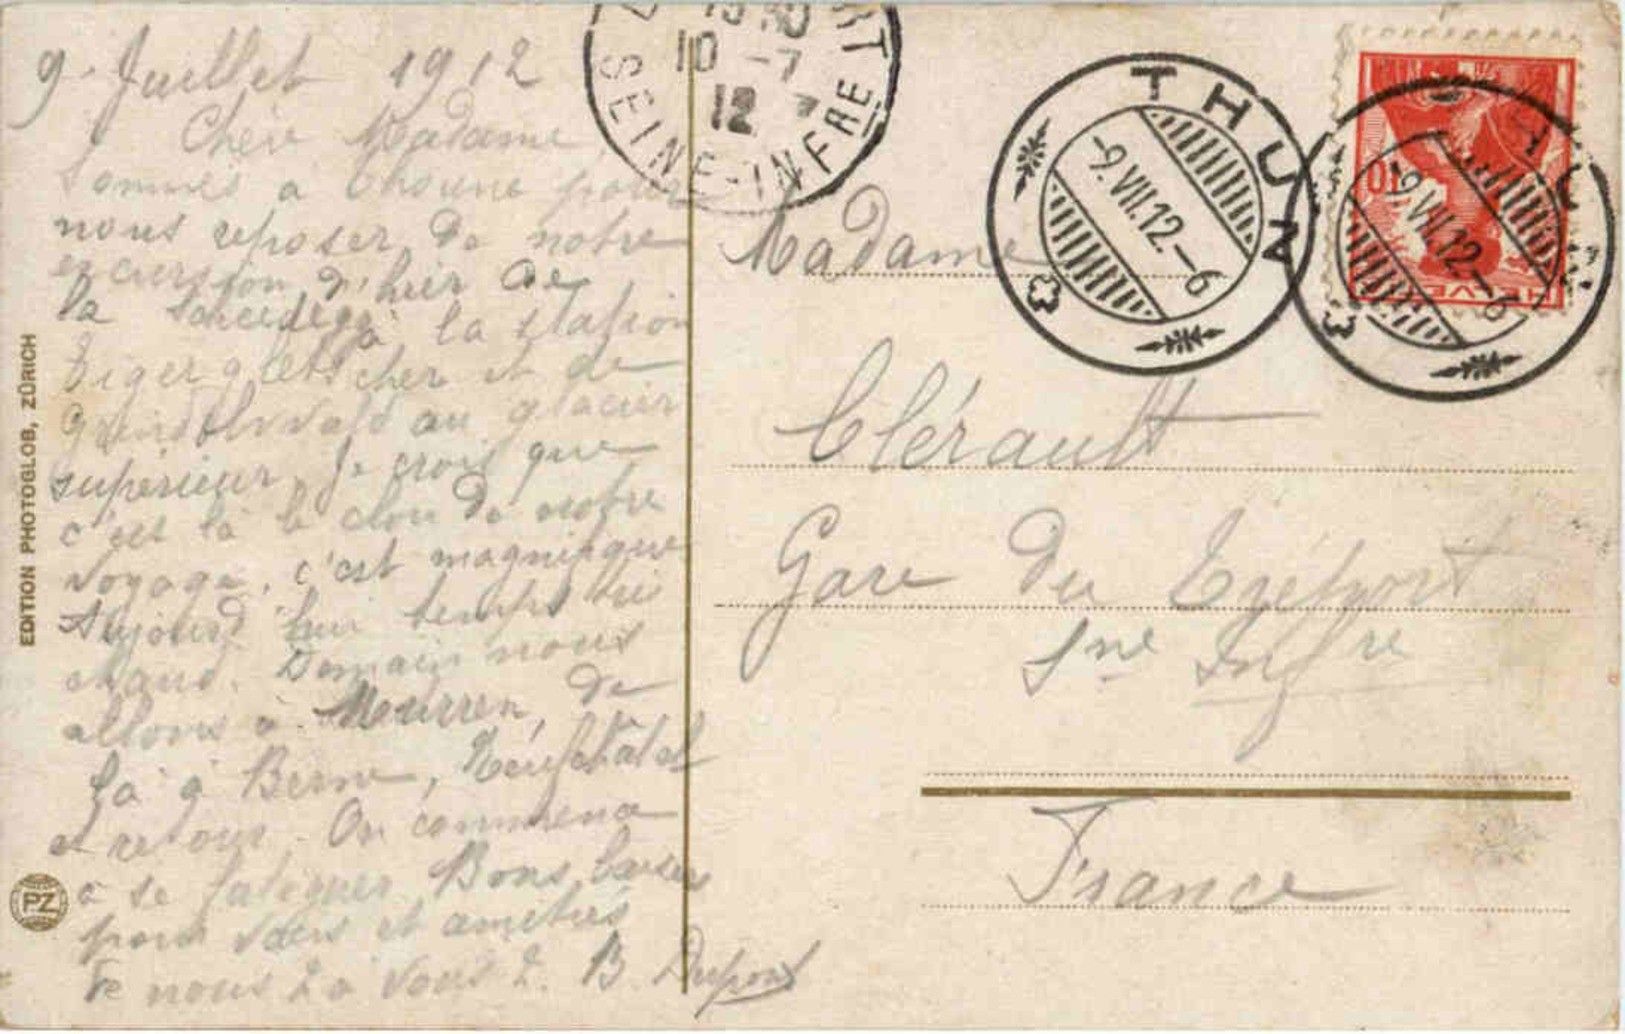 9 Juillet 1912
Chère Madame
Sommes à Thoune pour
nous reposer de notre
excursion d'hier de
la Scheidegg à la station
Eigergletscher et de
Grindelwald au glacier
supérieur. Je crois que
c'est là le clou de notre
voyage, c'est magnifique
Aujourd'hui temps très
chaud. Demain nous
allons à Mourren, de
là à Berne, Neufchatel
et retour. On commence
à se fatiguer. Bons baisers
pour vous et amitiés
de nous 2 à vous 2. B. Dupont
EDITION PHOTOGLOB, ZÜRICH
PZ
10 -7
12
SEINE-INFRE
THUN
-9.VII.12-6
THUN
-9.VII.12-6
10
HELVE
Madame
Clérault
Gare du Tréport
Sne Infre
France